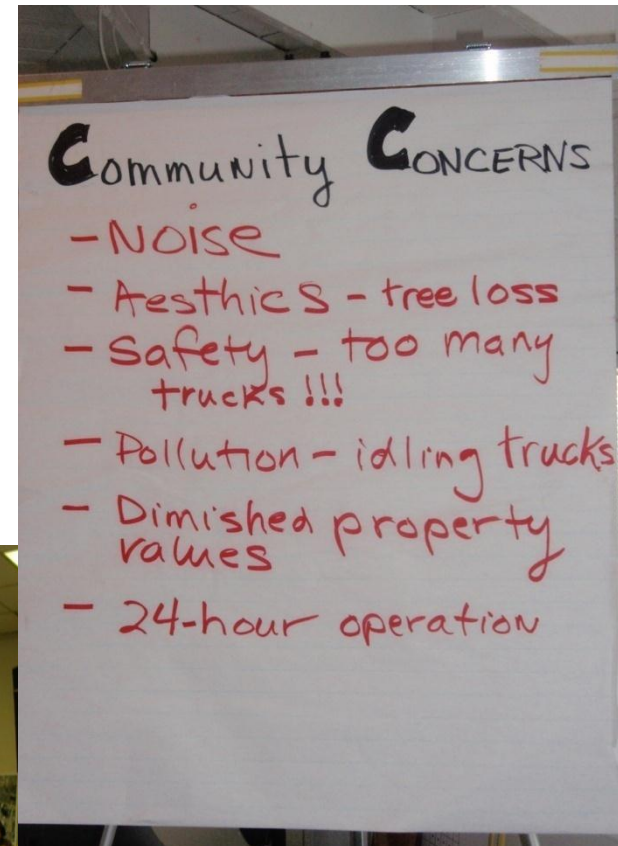 Community CONCERNS
- NOISE
- Aesthics - tree loss
- Safety - too many
trucks !!!
- Pollution - idling trucks
- Dimished property
values
- 24-hour operation